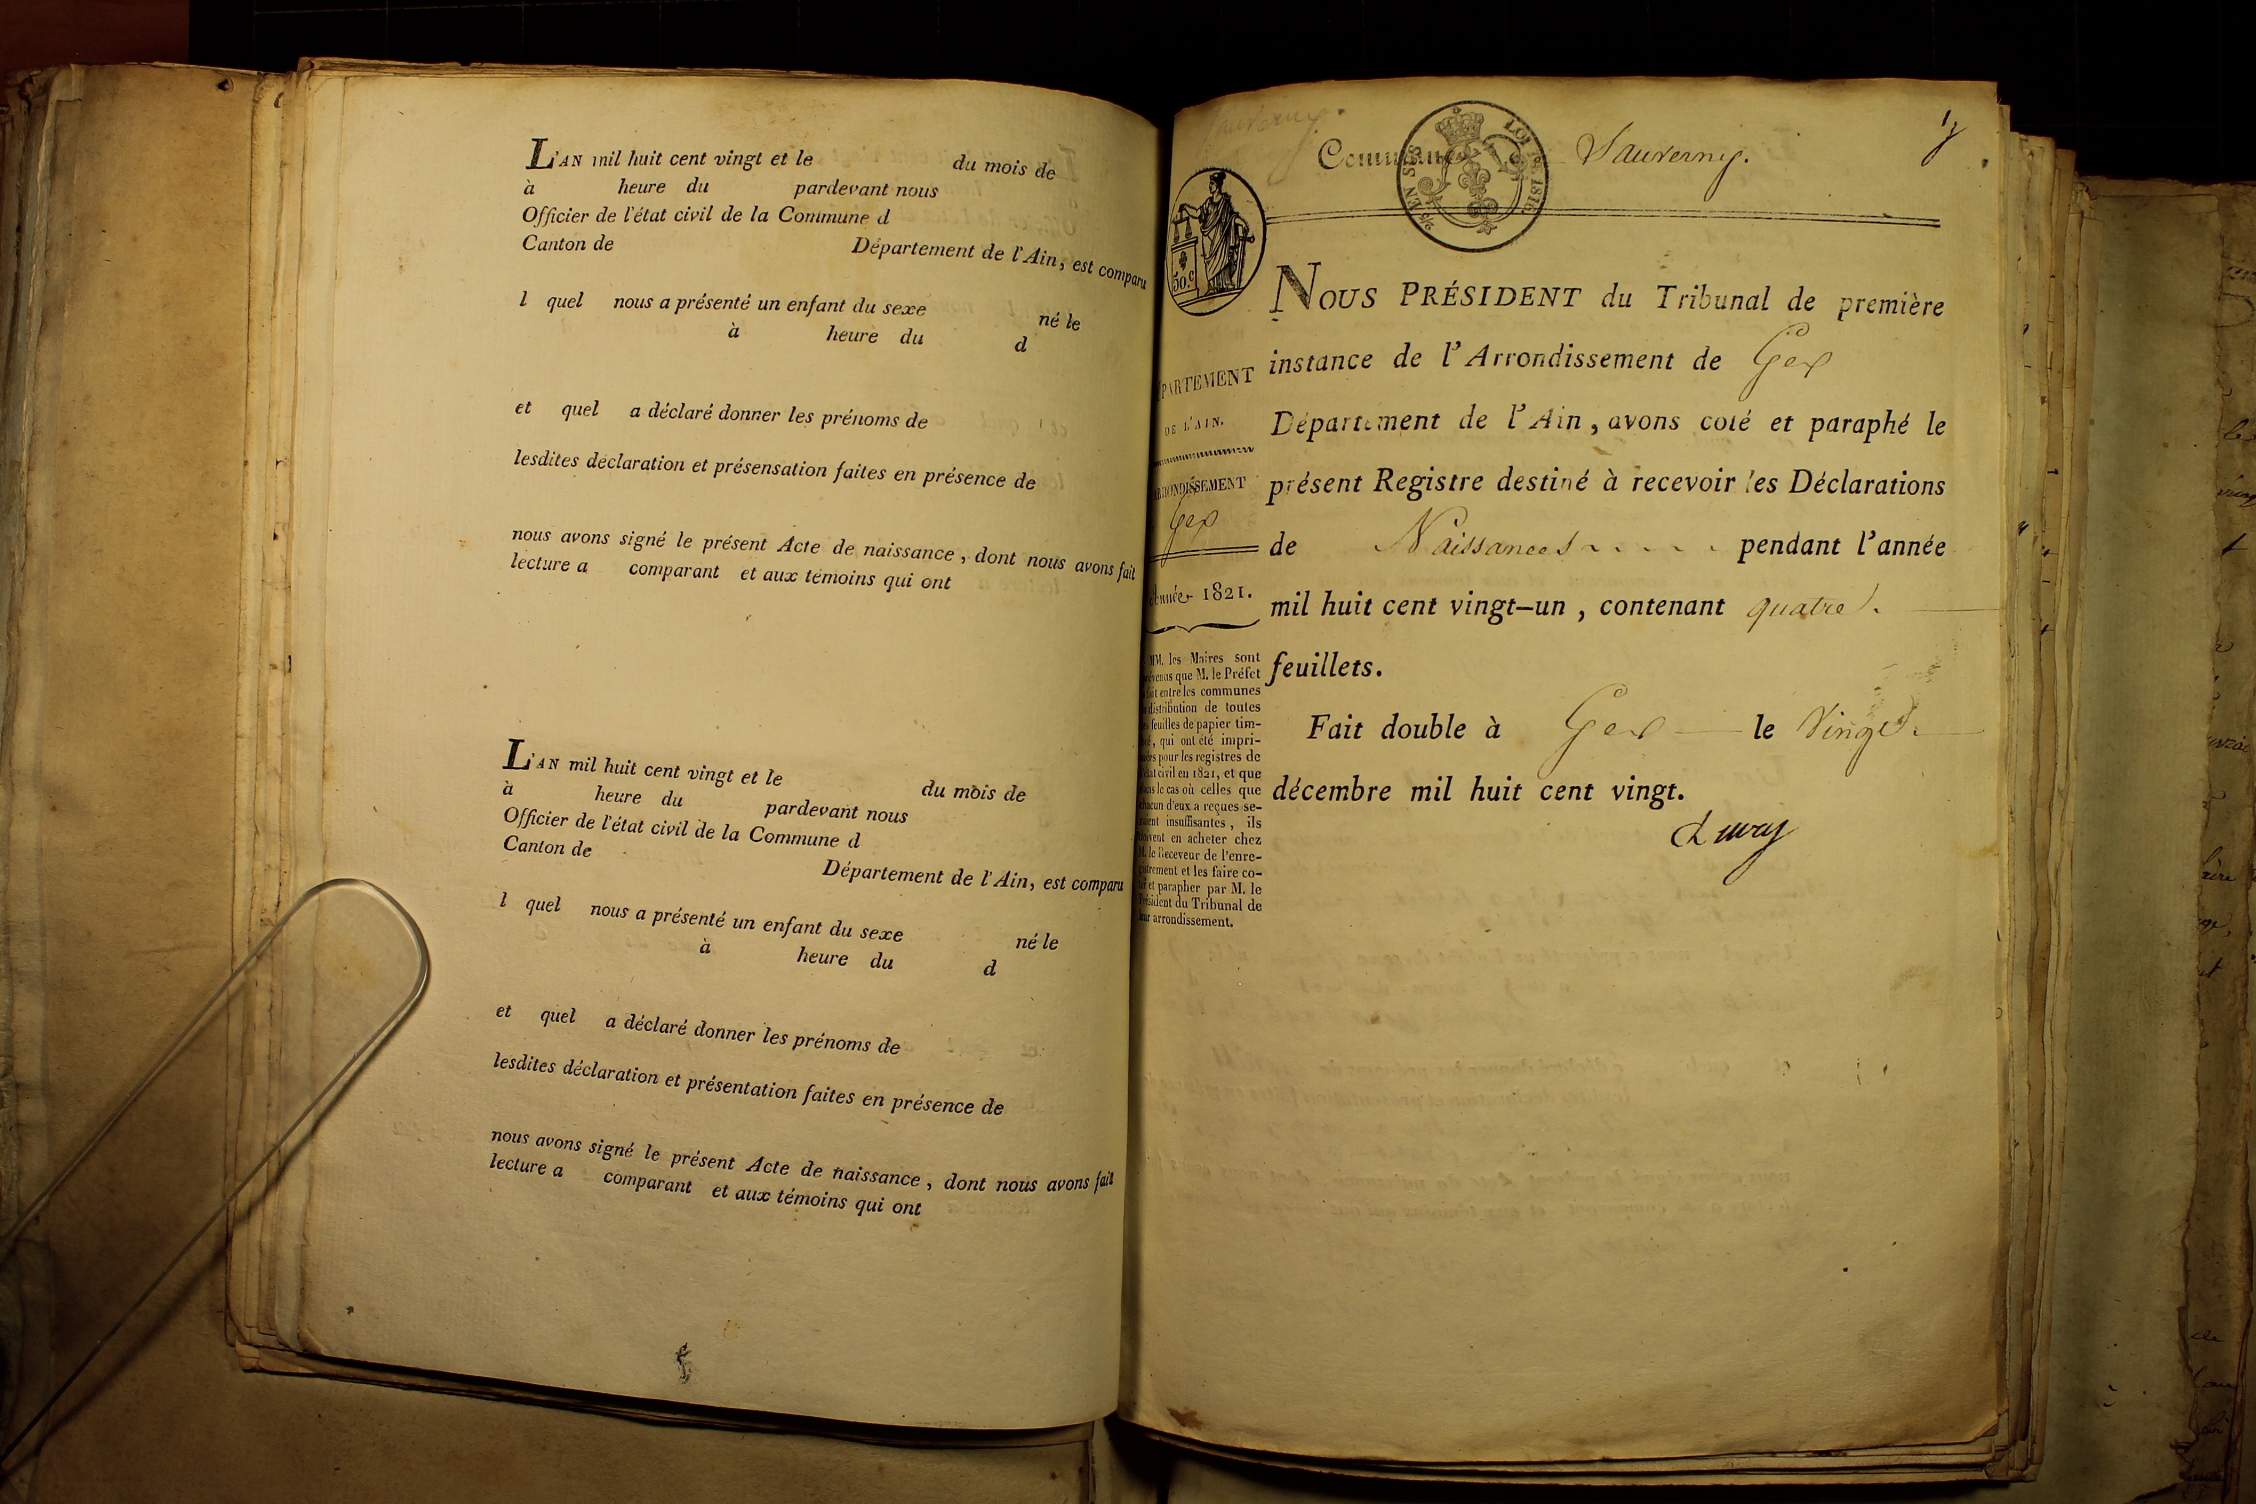 L'AN mil huit cent vingt et le du mois de
à heure du pardevant nous
Officier de l'état civil de la Commune d
Canton de Département de l'Ain, est comparu
l quel nous a présenté un enfant du sexe né le
à heure du d
et quel a déclaré donner les prénoms de
lesdites déclaration et présensation faites en présence de
nous avons signé le présent Acte de naissance, dont nous avons fait
lecture a comparant et aux témoins qui ont
L'AN mil huit cent vingt et le du mois de
à heure du pardevant nous
Officier de l'état civil de la Commune d
Canton de Département de l'Ain, est comparu
l quel nous a présenté un enfant du sexe né le
à heure du d
et quel a déclaré donner les prénoms de
lesdites déclaration et présentation faites en présence de
nous avons signé le présent Acte de naissance, dont nous avons fait
lecture a comparant et aux témoins qui ont
Sauverny.
Commune Sauverny.
LOI DE 1816.
EN SUS
50.c
PARTEMENT
DE L'AIN.
ARRONDISSEMENT
Gex
Année 1821.
MM. les Maires sont
venus que M. le Préfet
fait entre les communes
distribution de toutes
feuilles de papier tim-
, qui ont été impri-
es pour les registres de
état civil en 1821, et que
dans le cas où celles que
chacun d'eux a reçues se-
raient insuffisantes, ils
doivent en acheter chez
M. le Receveur de l'enre-
gistrement et les faire co-
ter et parapher par M. le
Président du Tribunal de
leur arrondissement.
NOUS PRÉSIDENT du Tribunal de première
instance de l'Arrondissement de Gex
Département de l'Ain, avons coté et paraphé le
présent Registre destiné à recevoir les Déclarations
de Naissances pendant l'année
mil huit cent vingt-un, contenant quatre
feuillets.
Fait double à Gex le Vingt
décembre mil huit cent vingt.